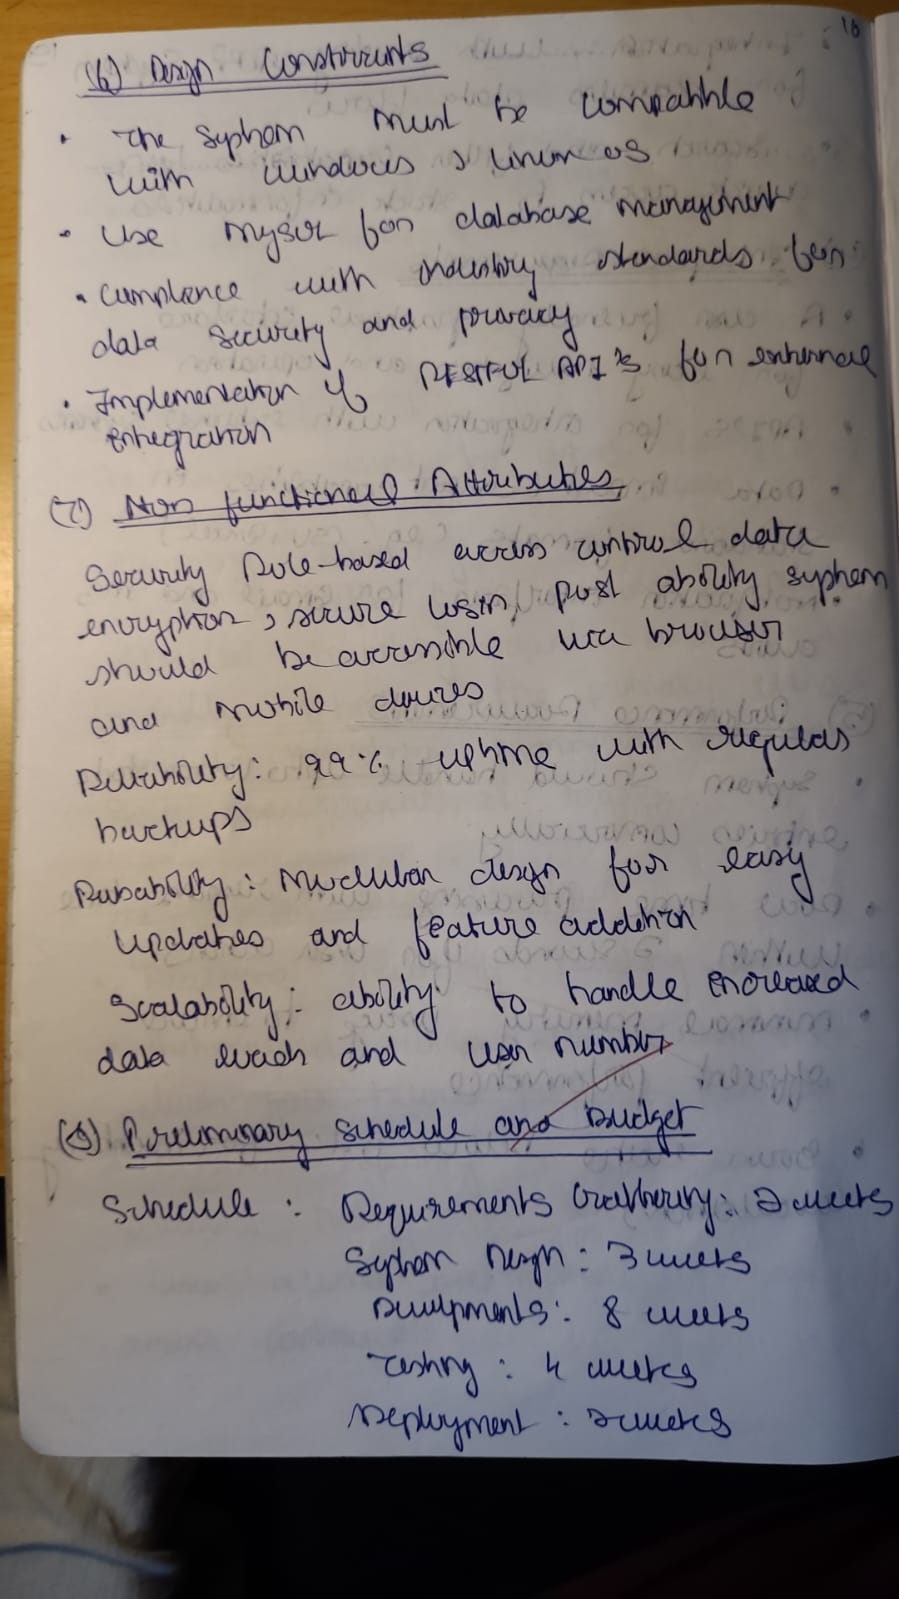 10
(6) Design Constraints
• The system must be compatible
with windows, linux os
• Use mysql for database management
• Complience with industry standards for
data security and privacy
• Implementation of RESTFUL API's for external
integration
(7) Non functional Attributes
Security Role-based access control data
encryption, secure login, port ability, system
should be accessible via browser
and mobile devices
Reliability: 99% uptime with regular
backups
: Modular design for easy
updates and feature addition
Scalability: ability to handle increased
data and user number
(8) Preliminary schedule and Budget
Schedule: Requirements Gathering: 2 weeks
System Design: 3 weeks
Developments: 8 weeks
Testing: 4 weeks
Deployment: 2 weeks